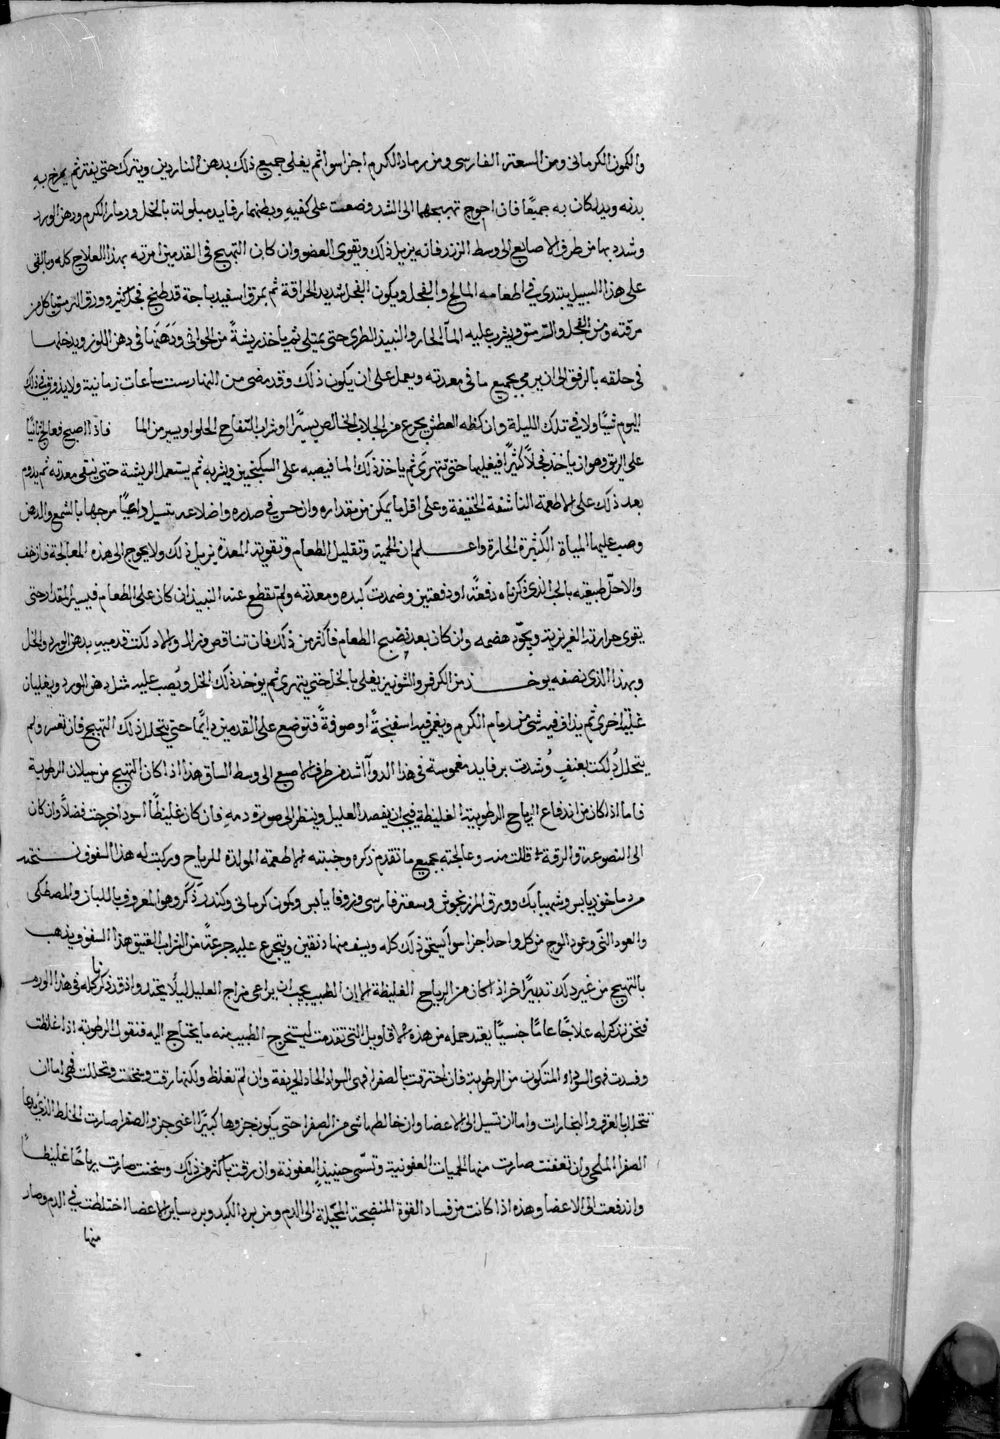 والكمون الكرماني ومن السعتر الفارسي ومن رماد الكرم اجزا سوا ثم يغلى جميع ذلك بدهن الناردين ويترك حتى يفتر ثم يمرخ به
بدنه ويدلكان به جميعًا فان احوج تهبجهما الى الشد وضعت على كفيه وبطنهما رفايد مبلولة بالخل ورماد الكرم ودهن الورد
وشدد بها من طرف الاصابع الى وسط الزند فانه يزيل ذلك ويقوى العضو وان كان التهبج في القدمين امرته بهذا العلاج كله وبالقى
على هذا السبيل يبتدى في اطعامه المالح والفجل ويكون الفجل شديد الحرافة ثم بمرق اسفيدباجة قد طبخ فجل كثير وورق السرمق ياكل من
مرقته ومن الفجل والسرمق ويشرب عليه الماء الحار والنبيذ الطرى حتى يمتلى ثم ياخذ ريشة من الخوافى ودهنها في دهن اللوز ويدخلها
في حلقه بالرفق الى ان يرمي بجميع ما في معدته ويعمل على ان يكون ذلك وقد مضى من النهار ست ساعات زمانية ولا يذوق في ذلك
اليوم شيًا ولا في تلك الليلة وان كظه العطش يجرع من الجلاب الخالص يسيرًا او شراب التفاح الحلو او يسير من الما فاذا اصبح فعالج ثانيًا
على الريق وهو ان ياخذ فجلًا كثيرًا فيغليها حتى تتهرى ثم ياخذ ذلك الما فيصبه على السكنجبين ويشربه ثم يستعمل الريشة حتى ينقى معدته ثم يدوم
بعد ذلك على الاطعمة الناشفة الخفيفة وعلى اقل ما يمكن من مقداره وان حس في صدره واضلاعه مرخها بالشمع والدهن
وصب عليها المياه الكثيرة الحارة واعلم ان الحمية وتقليل الطعام وتقوية المعدة يزيل ذلك ولا يحوج الى هذه المعالجة فان خف
والا حل طبيعته بالحب الذي ذكرناه دفعةً او دفعتين وضمدت كبده ومعدته ولم تقطع عنه النبيذ ان كان على الطعام فيسير المقدار حتى
يقوى حرارته الغريزية ويجود هضمه وان كان بعد نضج الطعام فاكثر من ذلك فان تناقص وزال والا دلكت قدميه بدهن الورد والخل
وبهذا الذي نصفه يوخذ من الكرفس والشونيز يغلى بالخل حتى يتهرى ثم يوخذ ذلك الخل ويصب عليه مثله دهن الورد ويغليان
غليه اخرى ثم يذاف فيه شى من رماد الكرم ويغمر فيه اسفنجةً او صوفةً فتوضع على القدمين دايمًا حتى يتحلل ذلك التهبج فان تعسر ولم
يتحلل دُلكت بعنفٍ وشدت برفايد مغموسة في هذا الدوآ اشد من طرف الاصبع الى وسط الساق هذا اذا كان التهبج من سيلان الرطوبة
فاما اذا كان من اندفاع الرياح الرطوبية الغليظة فيجب ان يفصد العليل وينظر الى صورة دمه فان كان غليظًا اسود اخرجت فضلًا وان كان
الى النصوعة والرقة قللت منه وعالجته بجميع ما تقدم ذكره وجنبته الاطعمة المولدة للرياح وركبت له هذا السفوف نسخته
مرماخوز يابس وشهبابك وورق المرزنجوش وسعتر فارسى وزوفا يابس وكمون كرمانى وكندر ذكر وهو المعروف باللبان والمصطكى
والعود النى وعود الوج من كل واحد اجزا سوا يسحق ذلك كله ويسف منها دنقين ويتجرع عليه جرعةً من الشراب العتيق هذا السفوف يذهب
بالتهبج من غير ذلك تدبيرًا اخر اذا كان من الرياح الغليظة الا ان الطبيب يجب ان يراعى مزاج العليل ليلا يحتد واذ قد ذكرنا كله في هذا الورم
فنحن نذكر له علاجًا عامًا جنسيًا بعد جمله من هذه الاقاويل التى تقدمت ليستخرج الطبيب منه ما يحتاج اليه فنقول الرطوبة اذا غلظت
وفسدت فهى السوداء المتكون من الرطوبة فان احترقت بالصفرا فهى السودا الحاد الحريفة وان لم تغلظ ولكنها رقت وسخنت وتحللت فهى اما ان
تتحلل بالعرق والبخارات واما ان تسيل الى الاعضا وان خالطها شى من الصفرا حتى يكون جزوها كبيرًا اعنى جزو الصفرا صارت الخلط الذى يدعا
الصفرا الملحى وان تعفنت صارت منها الحميات العفونية وتسمى حينيذ العفونة وان رقت باكثر من ذلك وسخنت صارت رياحًا غليظًا
واندفعت الى الاعضا وهذه اذا كانت من فساد القوة المنضجة المحيلة الى الدم ومن برد الكبد وبرد ساير الاعضا اختلطت في الدم وصار
منها